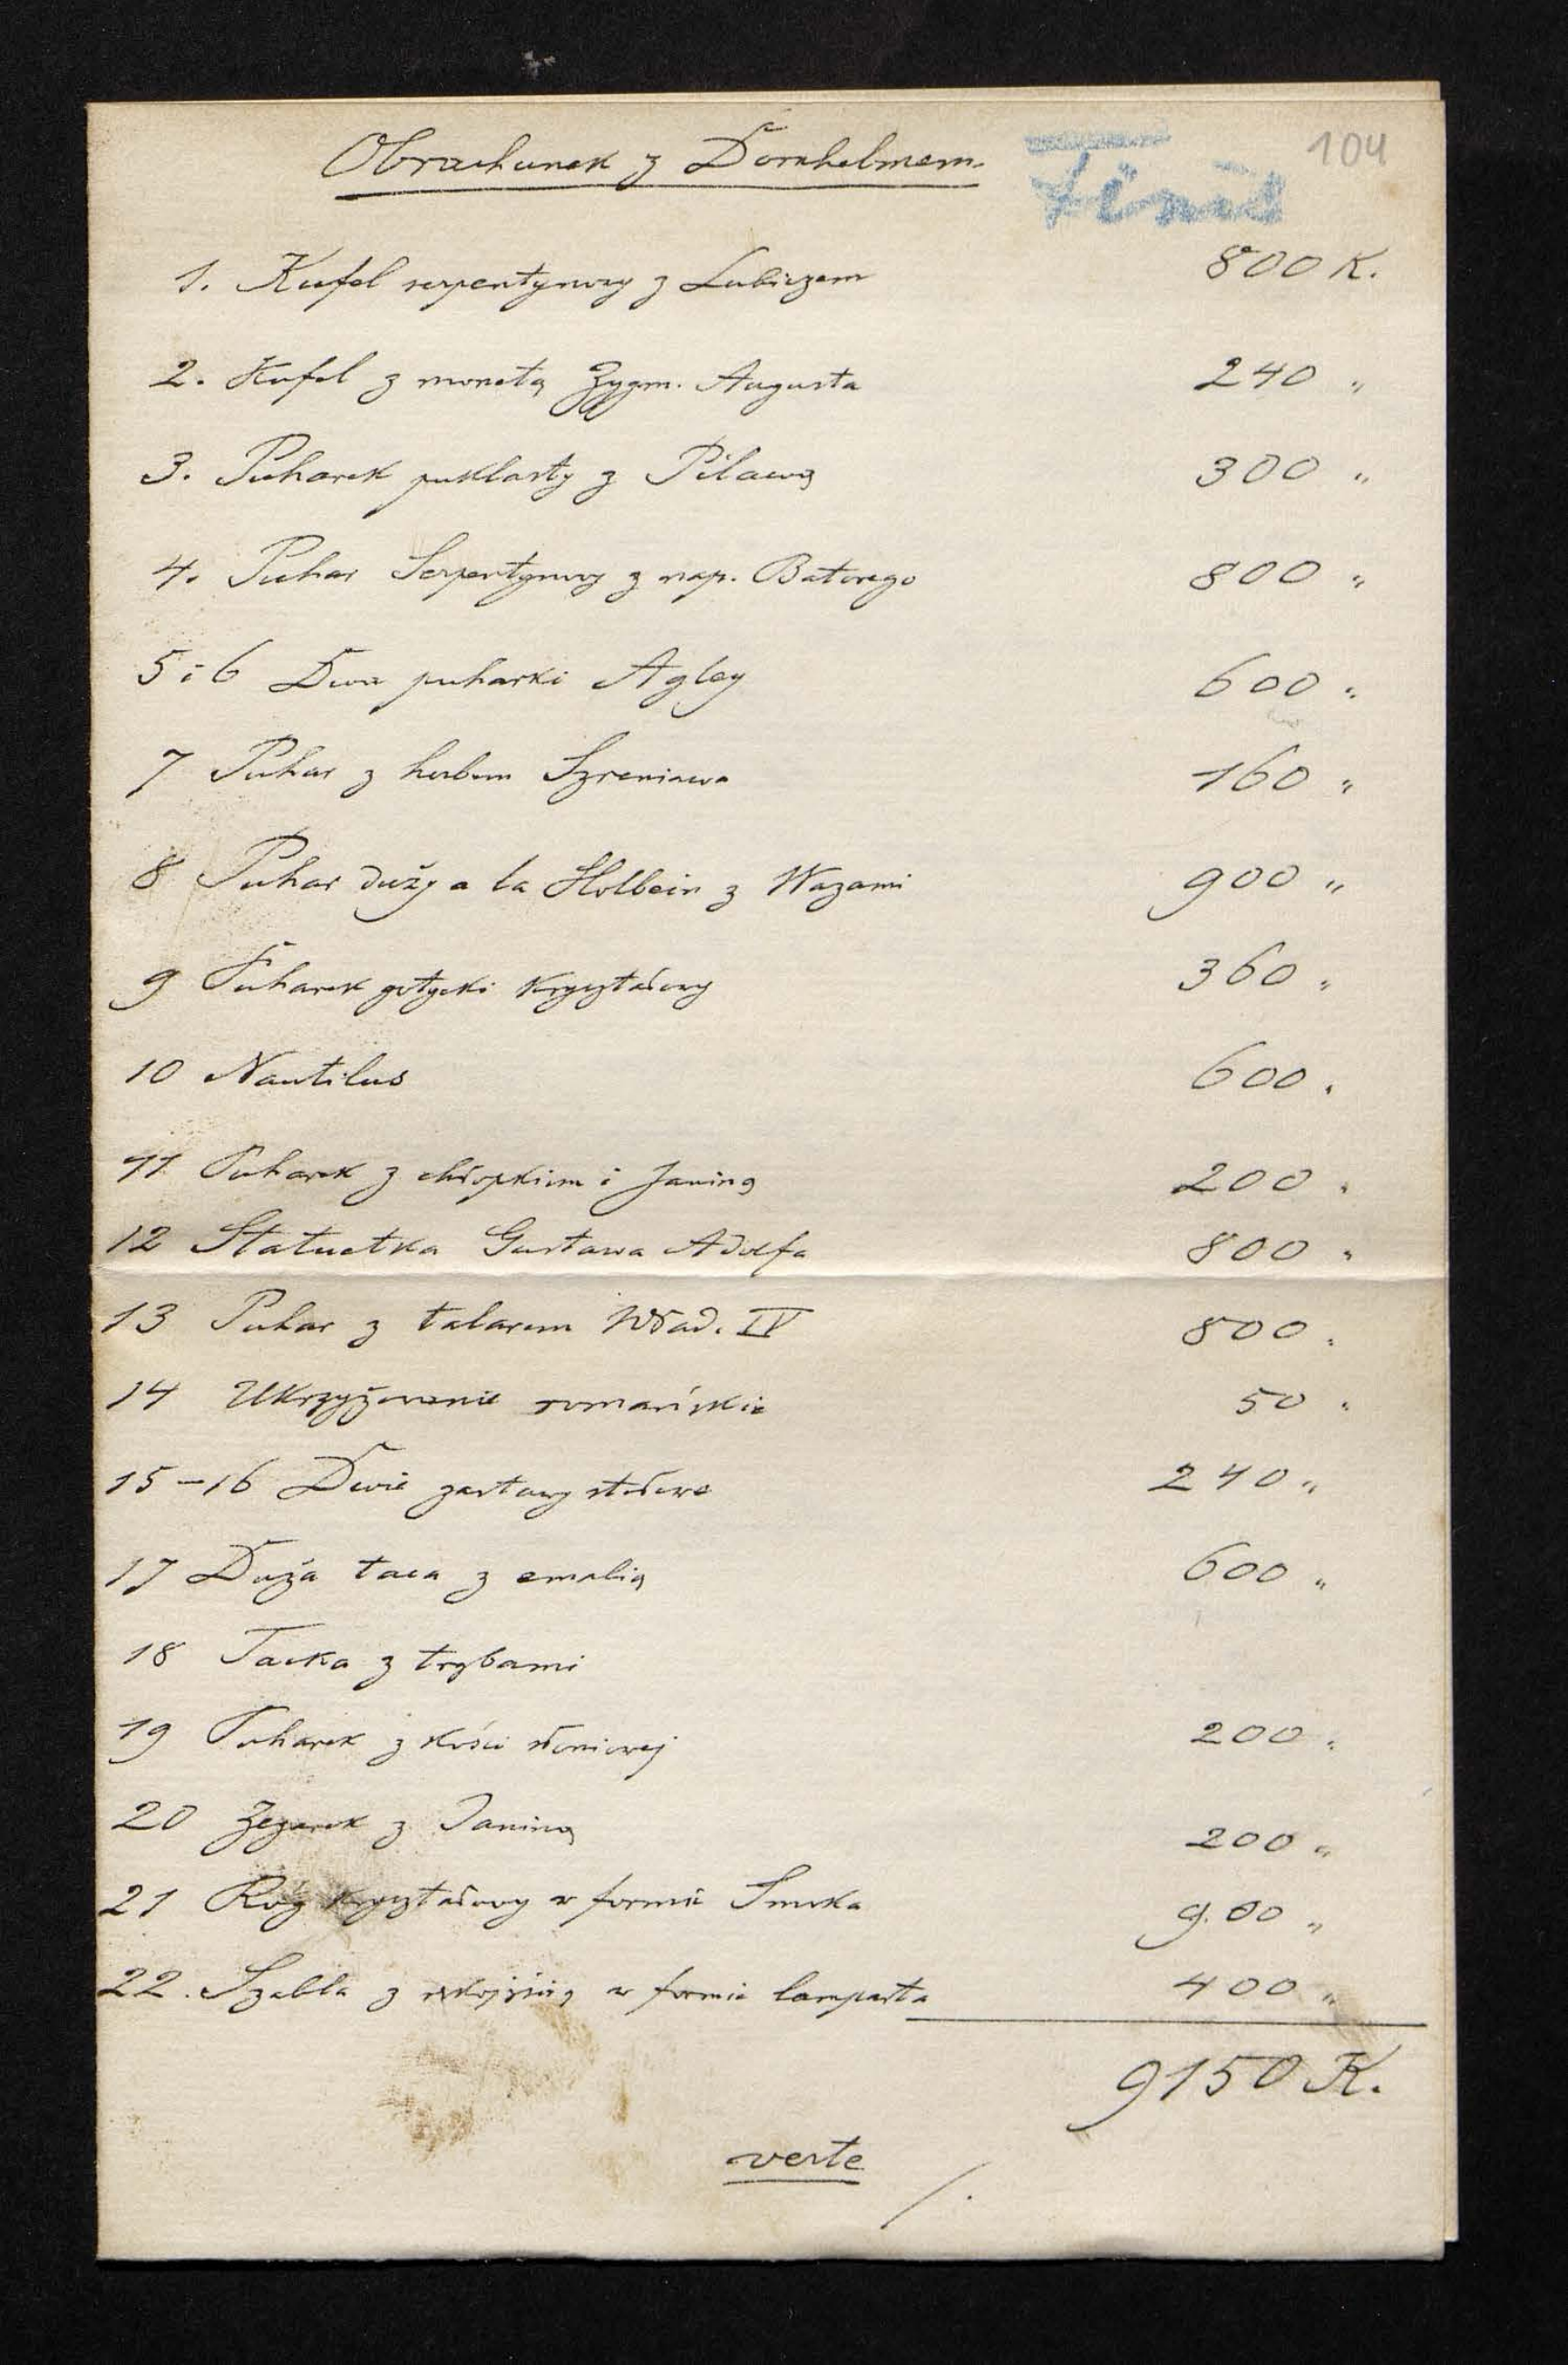 104
Obrachunek z Dornhelmem.
Finis
1. Kufel serpentynowy z Lubiczem 800 K.
2. Kufel z monetą Zygm. Augusta 240 "
3. Puharek puklasty z Pilawą 300 "
4. Puhar Serpentynowy z nap. Batorego 800 "
5 i 6 Dwa puharki Agley 600 "
7 Puhar z herbem Szreniawa 160 "
8 Puhar duży a la Holbein z Wazami 900 "
9 Puharek gotycki kryształowy 360 "
10 Nautilus 600 "
11 Puharek z chłopkiem i Janiną 200 "
12 Statuetka Gustawa Adolfa 800 "
13 Puhar z talarem Wład. IV 800 "
14 Ukrzyżowanie romańskie 50 "
15-16 Dwie zastawy stołowe 240 "
17 Duża taca z emalią 600 "
18 Tacka z trybami
19 Puharek z kości słoniowej 200 "
20 Zegarek z Janiną 200 "
21 Róg kryształowy w formie Smoka 900 "
22. Szabla z rękojścią w formie lamparta 400 "
9150 K.
verte
/.